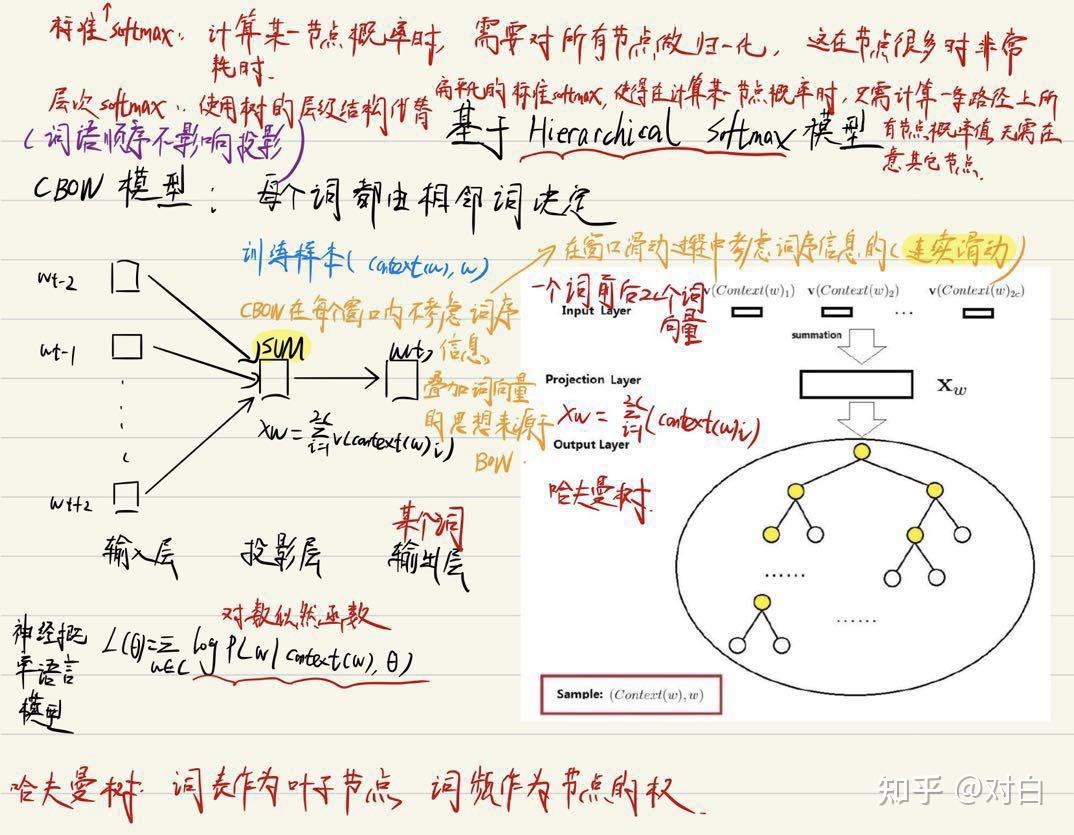 标准softmax：计算某一节点概率时，需要对所有节点做归一化，这在节点很多时非常
耗时.
层次softmax：使用树的层级结构代替扁平化的标准softmax，使得在计算某一节点概率时，只需计算一条路径上所
有节点概率值，无需在
意其它节点.
基于 Hierarchical Softmax 模型
(词语顺序不影响投影)
CBOW 模型：每个词都由相邻词决定
训练样本(context(w), w)
在窗口滑动过程中考虑词序信息的(连续滑动)
CBOW在每个窗口内不考虑词序
信息.
叠加词向量
的思想来源于
BOW.
wt-2
wt-1
wt+2
SUM
wt
Xw = ∑_{i=1}^{2c} v(context(w)i)
输入层
投影层
某个词
输出层
一个词前后2c个词
向量
v(Context(w)1) v(Context(w)2) v(Context(w)2c)
Input Layer
...
summation
Projection Layer
Xw
Xw = ∑_{i=1}^{2c}(context(w)i)
Output Layer
哈夫曼树
......
......
Sample: (Context(w), w)
对数似然函数
神经概
率语言
模型
L(θ)=∑_{w∈C} log P(w|context(w), θ)
哈夫曼树：词表作为叶子节点，词频作为节点的权.
知乎 @对白